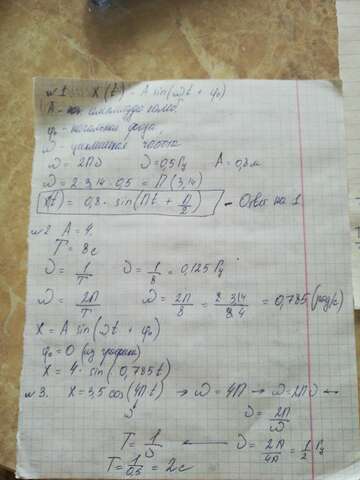 №1. X(t) = A sin(ωt + φ₀)
A - амплитуда колеб.
φ₀ - начальная фаза,
ω - циклическая частота
ω = 2πν ν = 0,5 Гц A = 0,8 м
ω = 2·3,14·0,5 = π (3,14)
X(t) = 0,8 · sin(πt + π/2) - Ответ на 1
№2 A = 4.
T = 8 с
ν = 1/T ν = 1/8 = 0,125 Гц
ω = 2π/T ω = 2π/8 = 2·3,14/8 = 0,785 (рад/с)
X = A sin(ωt + φ₀)
φ₀ = 0 (из графика)
X = 4 · sin(0,785t)
№3. X = 3,5 cos(4πt) → ω = 4π → ω = 2πν ←
ν = 2π/ω
T = 1/ν ← ν = 2π/4π = 1/2 Гц
T = 1/0,5 = 2 с